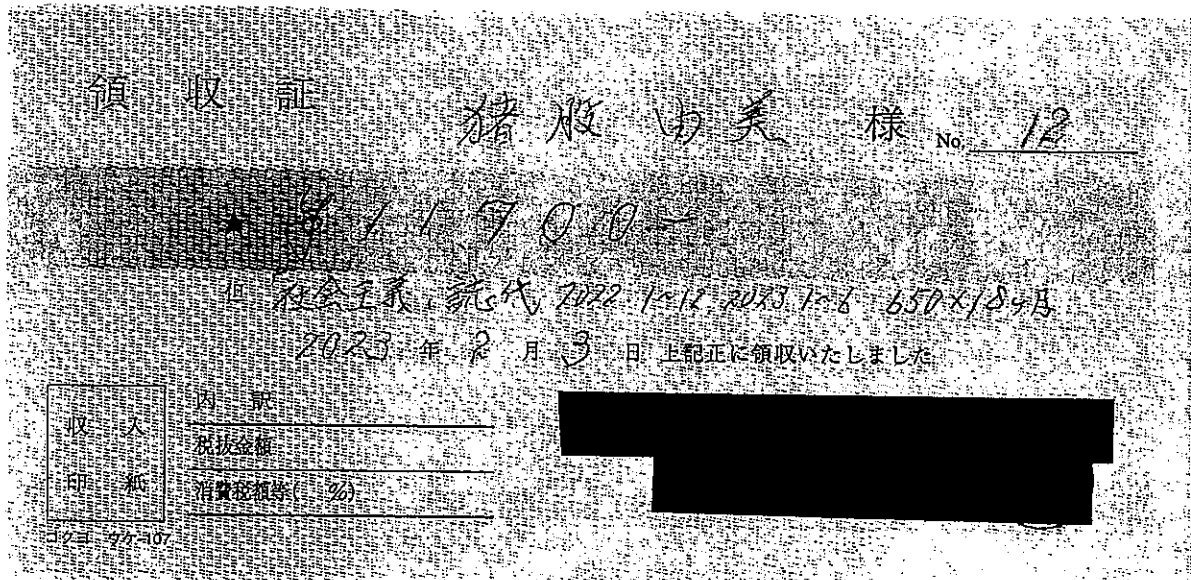 領収証 猪股由美 様 No. 12
★ ¥11700−
但 社会主義、誌代、2022.1~12、2023.1~6 650×18ヶ月
2023年2月3日 上記正に領収いたしました
内訳
収入 税抜金額
印紙 消費税額等( %)
コクヨ ウケ-107